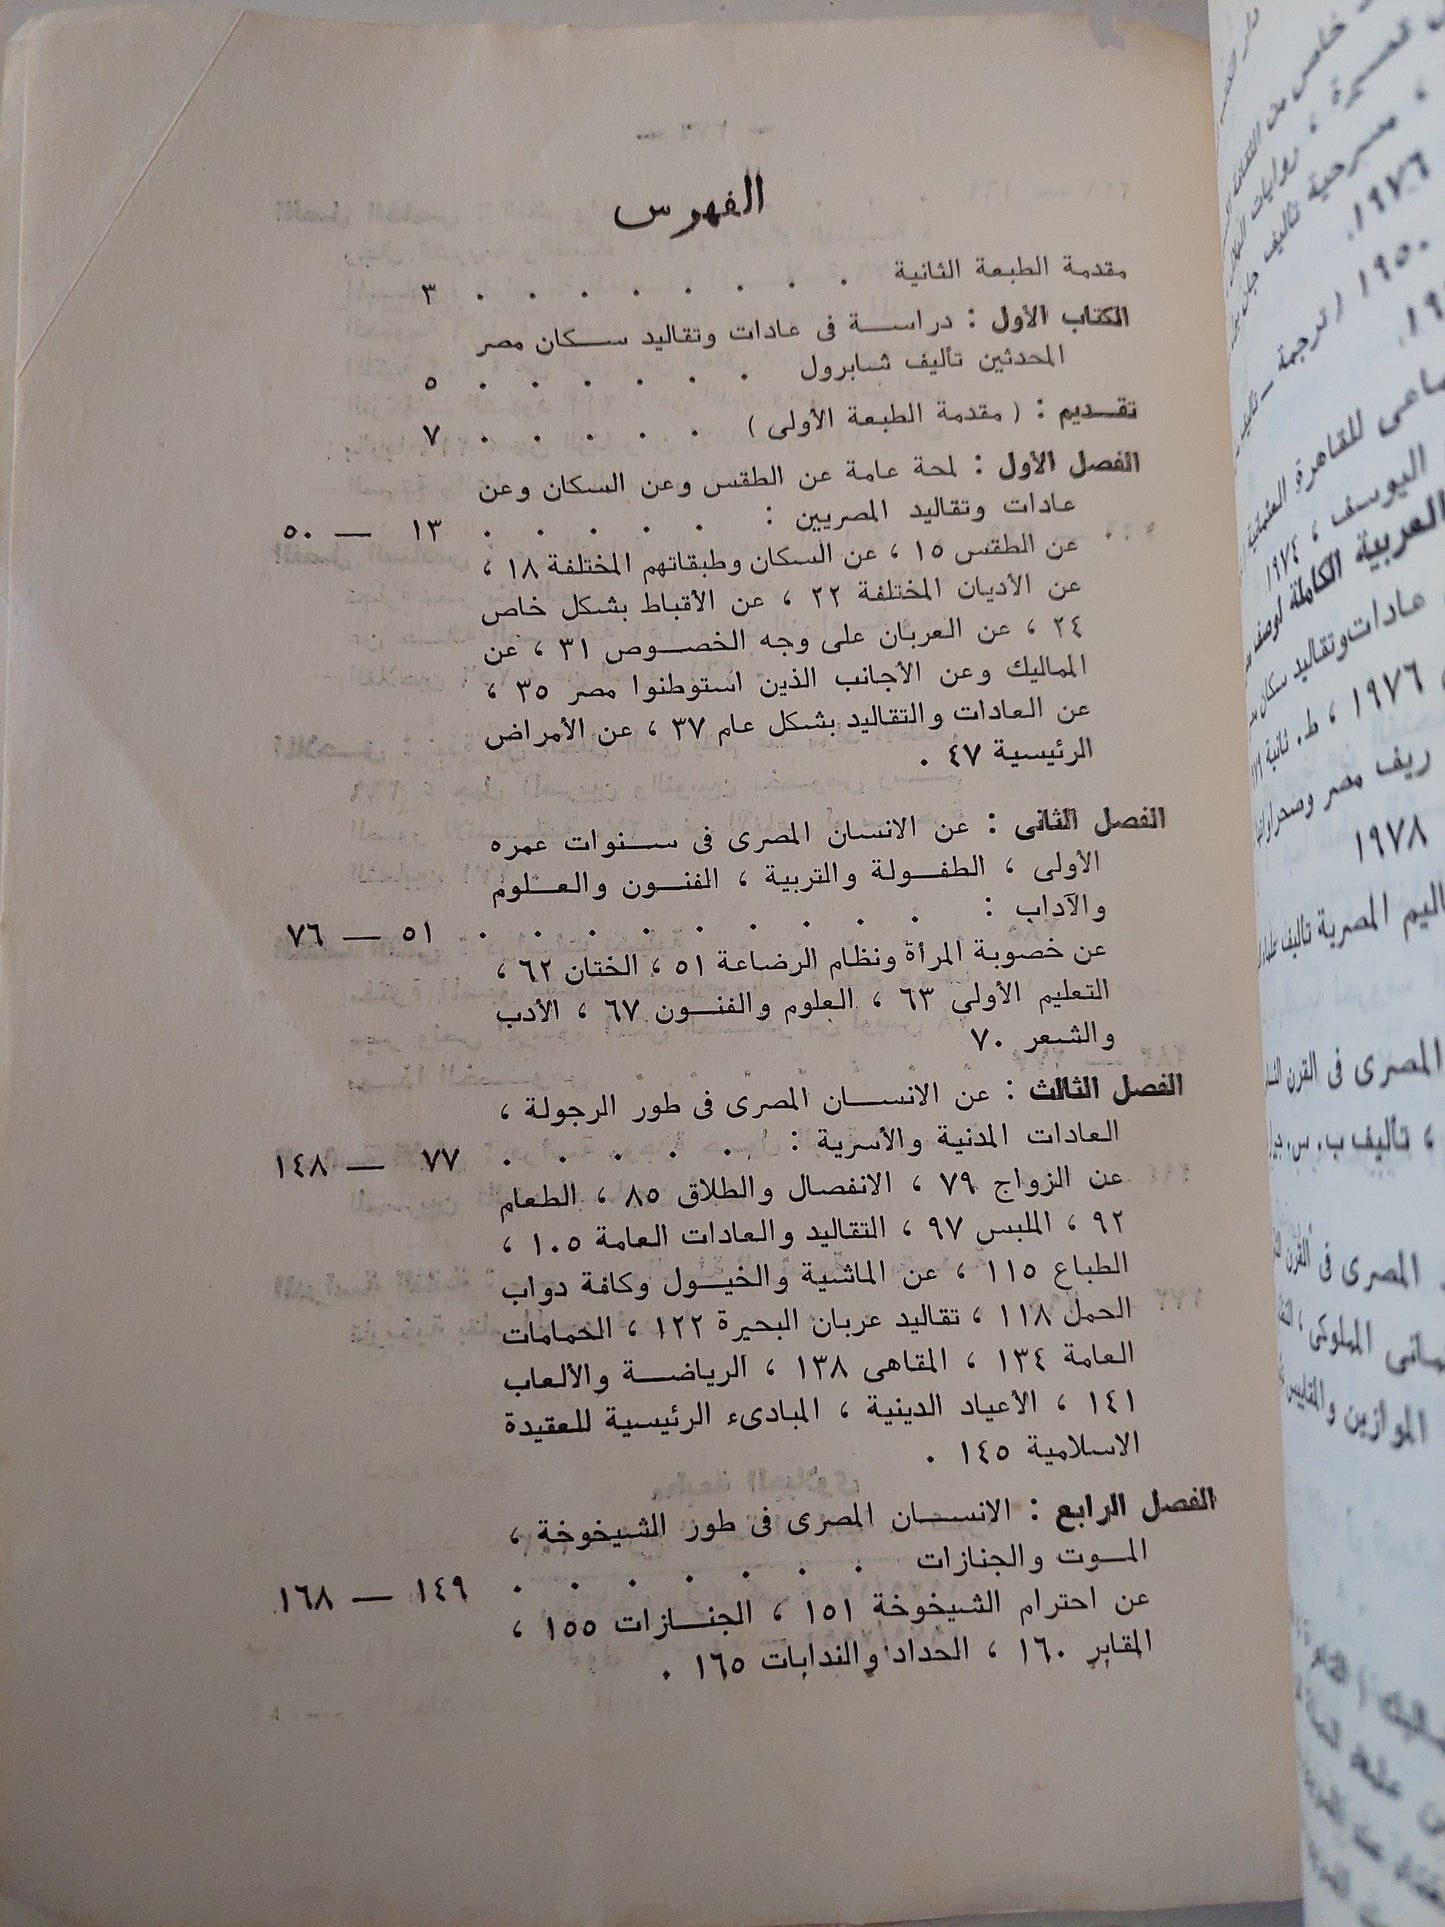 الفهرس
مقدمة الطبعة الثانية . . . . . . . . ٣
الكتاب الأول : دراسة فى عادات وتقاليد سكان مصر
المحدثين تأليف شابرول . . . . . . ٥
تقديم : ( مقدمة الطبعة الأولى ) . . . . . ٧
الفصل الأول : لمحة عامة عن الطقس وعن السكان وعن
عادات وتقاليد المصريين : . . . . . ١٣ — ٥٠
عن الطقس ١٥ ، عن السكان وطبقاتهم المختلفة ١٨ ،
عن الأديان المختلفة ٢٢ ، عن الأقباط بشكل خاص
٢٤ ، عن العربان على وجه الخصوص ٣١ ، عن
المماليك وعن الأجانب الذين استوطنوا مصر ٣٥ ،
عن العادات والتقاليد بشكل عام ٣٧ ، عن الأمراض
الرئيسية ٤٧ .
الفصل الثانى : عن الانسان المصرى فى سنوات عمره
الأولى ، الطفولة والتربية ، الفنون والعلوم
والآداب : . . . . . . . . . ٥١ — ٧٦
عن خصوبة المرأة ونظام الرضاعة ٥١ ، الختان ٦٢ ،
التعليم الأولى ٦٣ ، العلوم والفنون ٦٧ ، الأدب
والشعر ٧٠
الفصل الثالث : عن الانسان المصرى فى طور الرجولة ،
العادات المدنية والأسرية : . . . . . ٧٧ — ١٤٨
عن الزواج ٧٩ ، الانفصال والطلاق ٨٥ ، الطعام
٩٢ ، الملبس ٩٧ ، التقاليد والعادات العامة ١٠٥ ،
الطباع ١١٥ ، عن الماشية والخيول وكافة دواب
الحمل ١١٨ ، تقاليد عربان البحيرة ١٢٢ ، الحمامات
العامة ١٣٤ ، المقاهى ١٣٨ ، الرياضة والألعاب
١٤١ ، الأعياد الدينية ، المبادىء الرئيسية للعقيدة
الاسلامية ١٤٥ .
الفصل الرابع : الانسان المصرى فى طور الشيخوخة ،
الموت والجنازات . . . . . . . ١٤٩ — ١٦٨
عن احترام الشيخوخة ١٥١ ، الجنازات ١٥٥ ،
المقابر ١٦٠ ، الحداد والندابات ١٦٥ .
خاص من
، روايات
، مسرحية تأليف
١٩٧٦.
١٩٥٠ ( ترجمة —
للقاهرة
اليوسف ، ١٩٧٤
العربية الكاملة لوصف
عادات وتقاليد سكان
١٩٧٦ ، ط. ثانية
ريف مصر وصحراواتها
١٩٧٨
المصرية تأليف
المصرى فى القرن
، تأليف ب. س.
المصرى فى القرن
الموازين